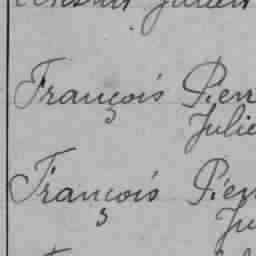 Julien
François Pierr
Julie
François Pierr
Ju